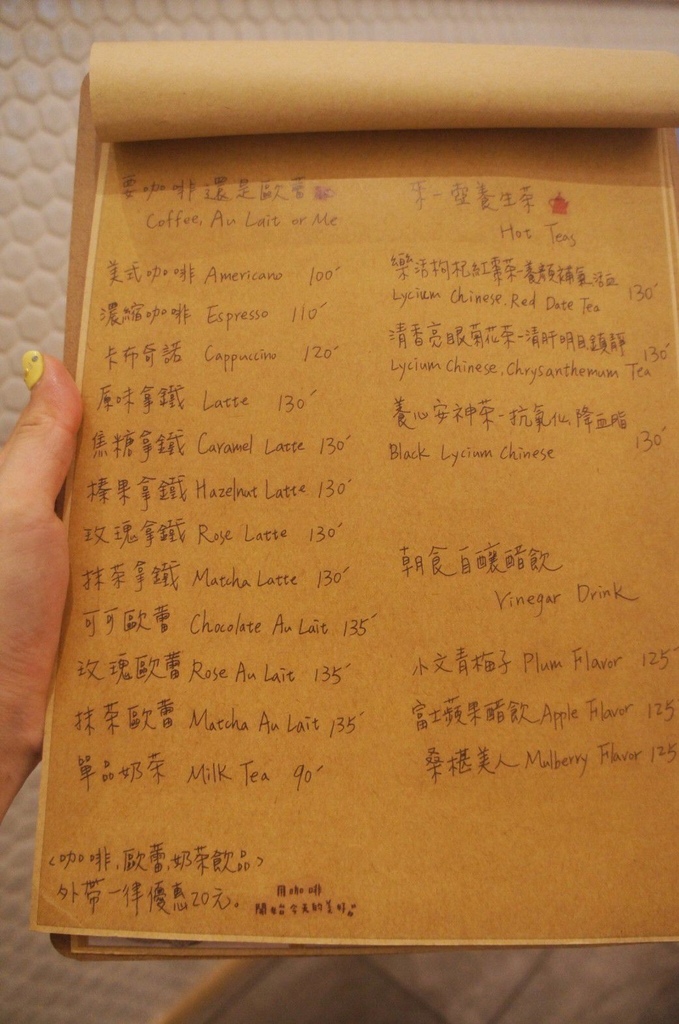 要咖啡還是歐蕾
Coffee, Au Lait or Me
美式咖啡 Americano 100
濃縮咖啡 Espresso 110
卡布奇諾 Cappuccino 120
原味拿鐵 Latte 130
焦糖拿鐵 Caramel Latte 130
榛果拿鐵 Hazelnut Latte 130
玫瑰拿鐵 Rose Latte 130
抹茶拿鐵 Matcha Latte 130
可可歐蕾 Chocolate Au Lait 135
玫瑰歐蕾 Rose Au Lait 135
抹茶歐蕾 Matcha Au Lait 135
單品奶茶 Milk Tea 90
<咖啡.歐蕾.奶茶飲品>
外帶一律優惠20元。
用咖啡
開始今天的美好
來一壺養生茶
Hot Teas
樂活枸杞紅棗茶-養顏補氣活血
Lycium Chinese. Red Date Tea 130
清香亮眼菊花茶-清肝明目鎮靜
Lycium Chinese. Chrysanthemum Tea 130
養心安神茶-抗氧化.降血脂
Black Lycium Chinese 130
朝食自釀醋飲
Vinegar Drink
小文青梅子 Plum Flavor 125
富士蘋果醋飲 Apple Flavor 125
桑椹美人 Mulberry Flavor 125